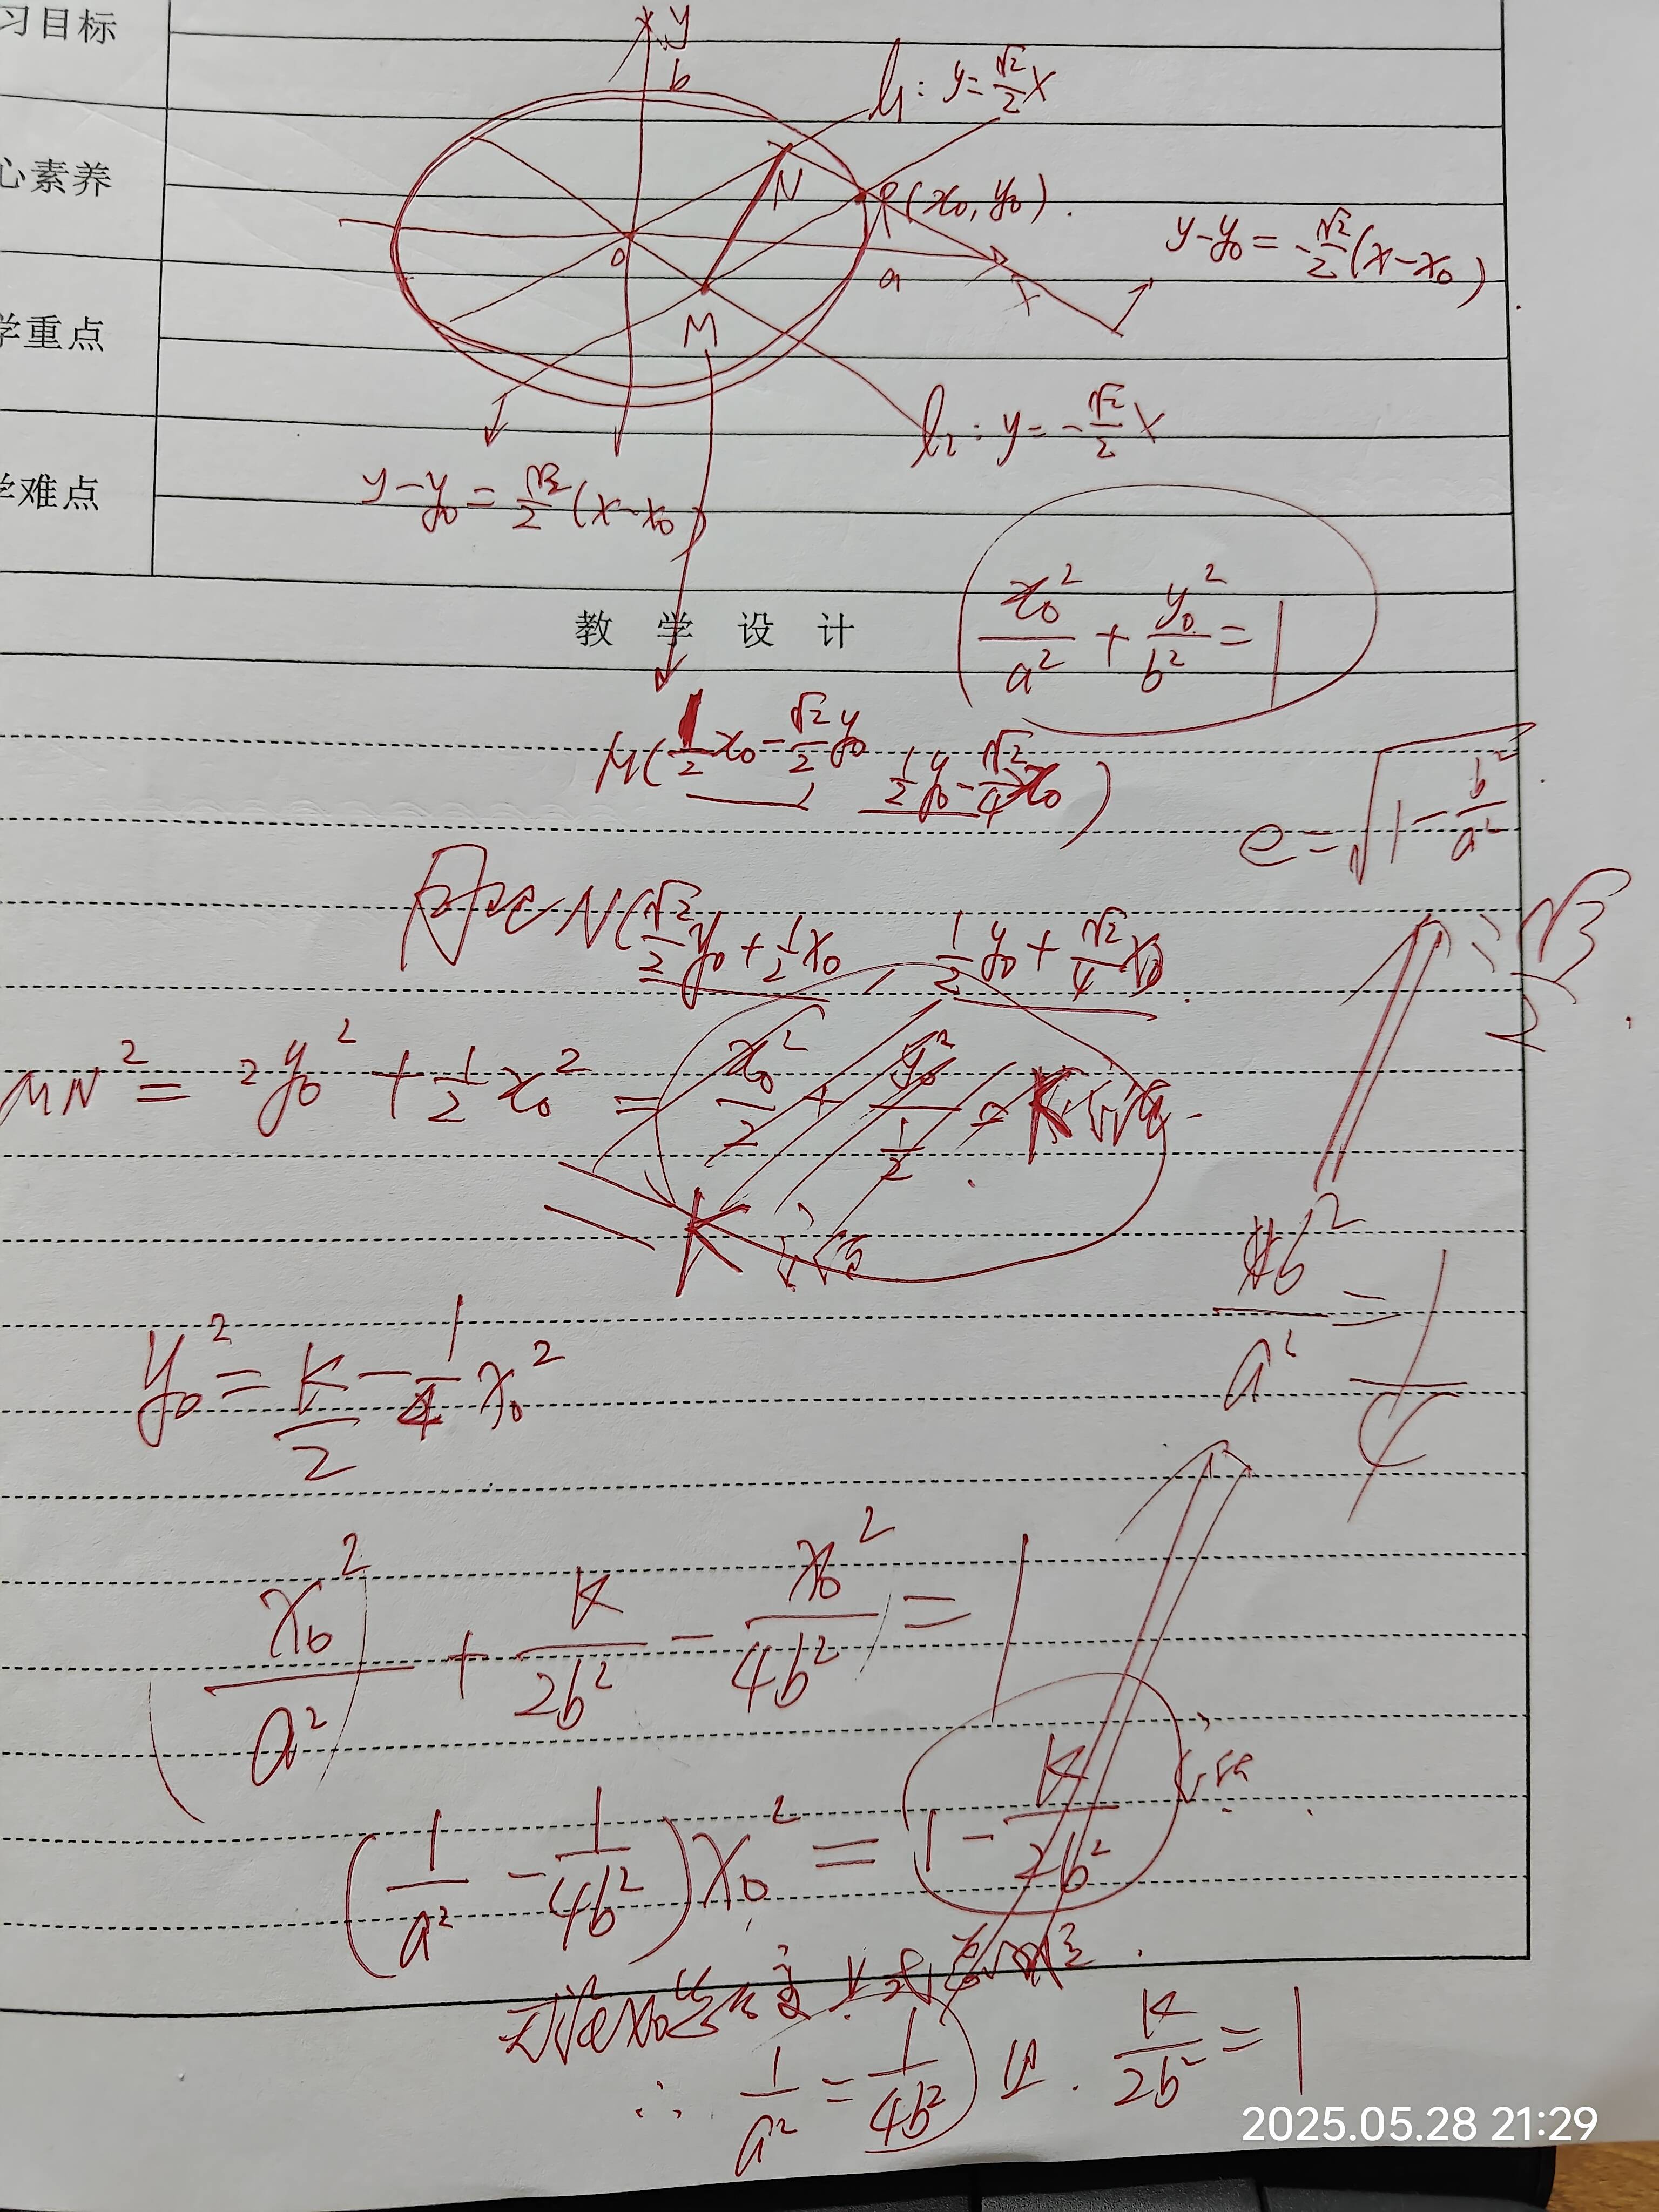 习目标
心素养
学重点
学难点
y
b
l₁: y=√2/2 x
N
P(x₀, y₀).
y-y₀=-√2/2(x-x₀)
o
a
x
M
l₂: y=-√2/2 x
y-y₀=√2/2(x-x₀)
x₀²/a²+y₀²/b²=1
教 学 设 计
M(1/2x₀-√2/2y₀ 1/2y₀-√2/4x₀)
e=√(1-b²/a²)
同理N(√2/2y₀+1/2x₀, 1/2y₀+√2/4x₀).
=√3/2
MN²=2y₀²+1/2x₀²=
K
b²/a²=1/4
y₀²=K/2-1/4x₀²
x₀²/a²+K/2b²-x₀²/4b²=1
(1/a²-1/4b²)x₀²=1-K/2b²
无论x₀
∴ 1/a²=1/4b² 且. K/2b²=1
2025.05.28 21:29